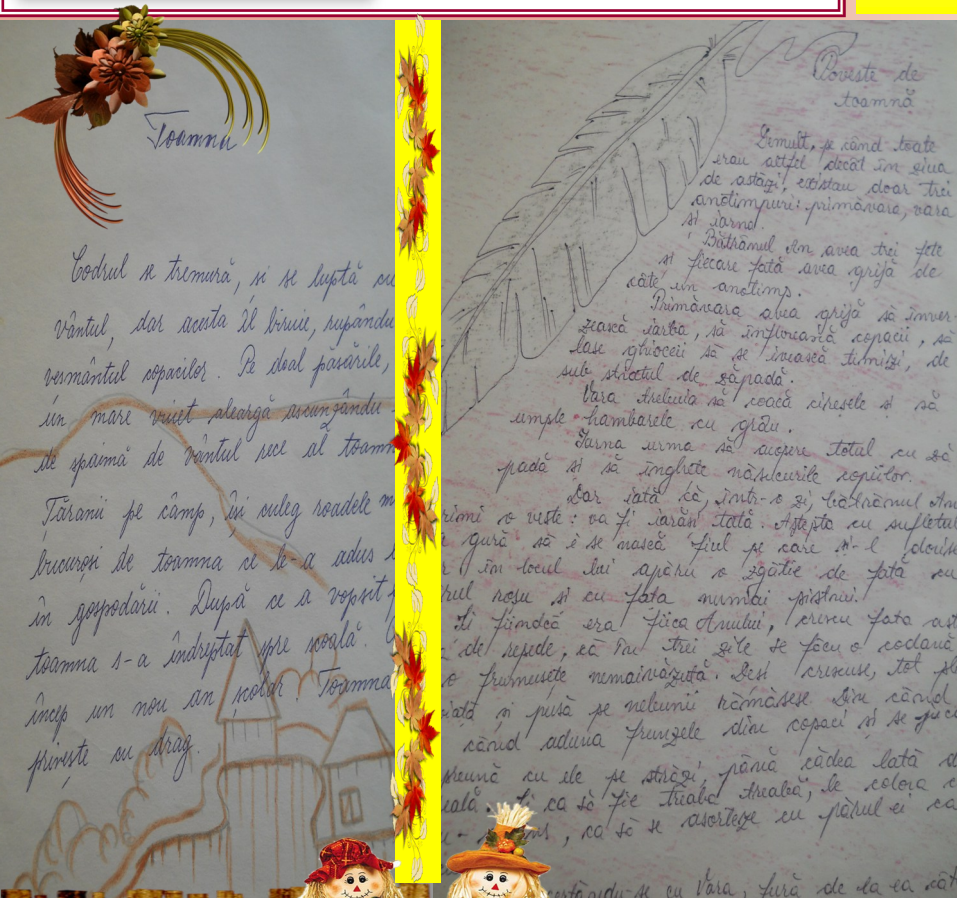 Toamna
Codrul se tremură, și se luptă cu
vântul, dar acesta îl biruie, rupându
vesmântul copacilor. Pe deal păsările,
în mare vuiet aleargă ascunzându
de spaimă de vântul rece al toamn
Țăranii pe câmp, își culeg roadele m
bucuroși de toamna ce le-a adus
în gospodării. După ce a vopsit
toamna s-a îndreptat spre școală.
încep un nou an școlar. Toamna
privește cu drag.
Poveste de
toamnă
Demult, pe când toate
erau altfel decât în ziua
de astăzi, existau doar trei
anotimpuri: primăvara, vara
și iarna.
Bătrânul An avea trei fete
si fiecare fată avea grijă de
câte un anotimp.
Primăvara avea grijă să înver-
zească iarba, să înflorească copacii, să
lase ghioceii să se ivească timizi, de
sub stratul de zăpadă.
Vara trebuia să coacă cireșele si să
umple hambarele cu grâu.
Iarna urma să acopere totul cu ză
padă si să înghețe năsucurile copiilor.
Dar iată că, într-o zi, bătrânul An
rimi o veste: va fi iarăsi tată. Aștepta cu sufletul
gură să i se nască fiul pe care si-l dorise
în locul lui apăru o zgâtie de fată cu
rul roșu si cu fața numai pistrui.
Și fiindcă era fiica Anului, crescu fata ast
de repede, că în trei zile se făcu o codană
o frumusețe nemaivăzută. Desi crescuse, tot
iată si pusă pe nebunii rămăsese. Din când
când aduna frunzele din copaci si se juca
preună cu ele pe străzi, până cădea lată
eală. Si ca să fie treaba treabă, le colora
ca să se asorteze cu părul ei ca
certându-se cu Vara, fură de la ea cât